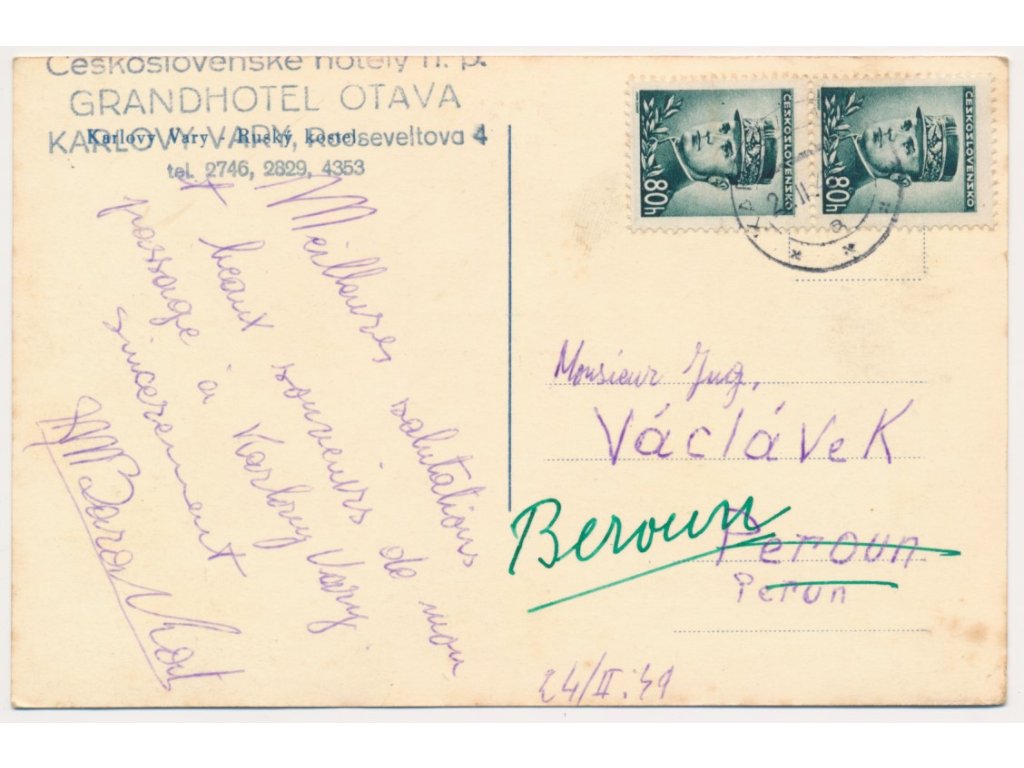 Československé hotely n. p.
GRANDHOTEL OTAVA
KARLOVY VARY, Rooseveltova 4
tel. 2746, 2829, 4353
Karlovy Vary Ruský kostel
Meilleures salutations
+ beaux souvenirs de mon
passage à Karlovy Vary.
sincerement
ČESKOSLOVENSKO
80h
ČESKOSLOVENSKO
80h
Monsieur Jng,
VáclaveK
Beroun
Peroun
Perun
24/II.49